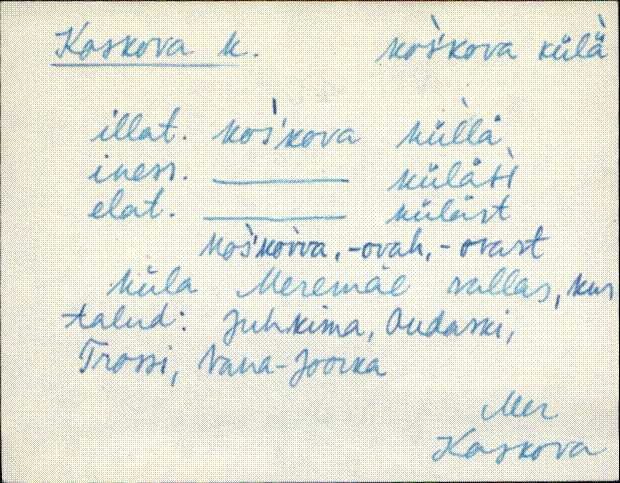 Kaskova k. koš́kova külä̀
illat. koš́kova küllä
iness. ——— küläśś
elat. ——— küläst
koš́kovva, -ovah, -ovast
küla Meremäe vallas, kus
talud: Juhkima, Oudaski,
Trossi, Vana-Joorka
Mer
Kaskova